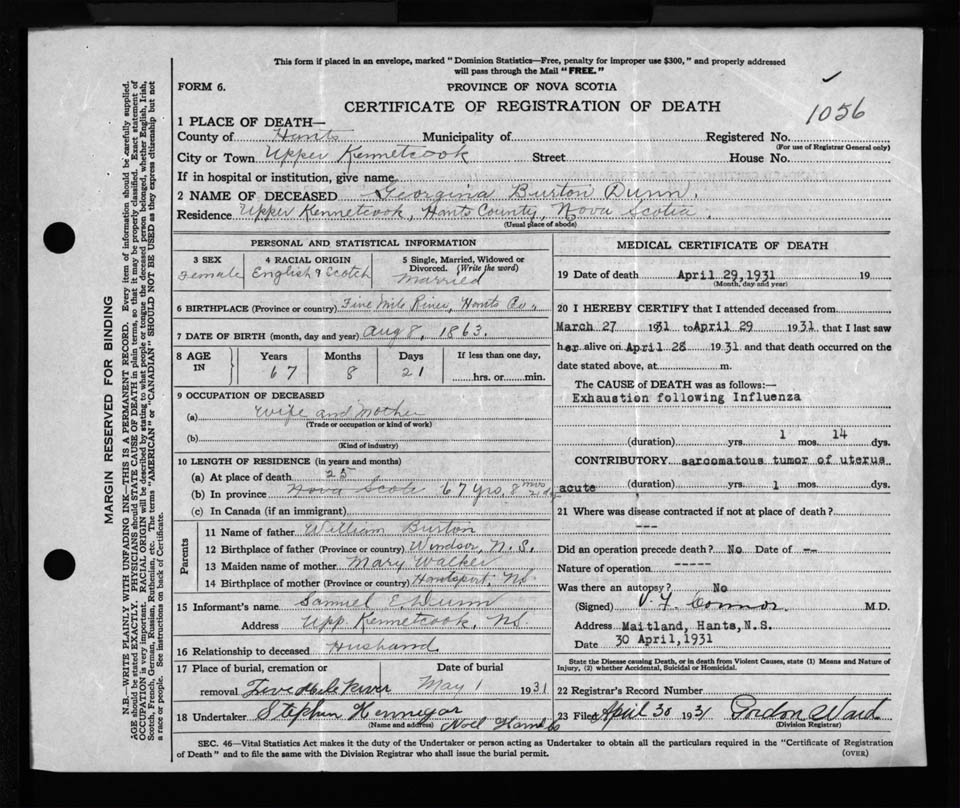 This form if placed in an envelope, marked "Dominion Statistics—Free, penalty for improper use $300," and properly addressed
will pass through the Mail "FREE."
FORM 6.
PROVINCE OF NOVA SCOTIA
CERTIFICATE OF REGISTRATION OF DEATH
1056
1 PLACE OF DEATH—
County of Hants Municipality of Registered No.
(For use of Registrar General only)
City or Town Upper Kennetcook Street House No.
If in hospital or institution, give name
2 NAME OF DECEASED Georgina Burton Dunn.
Residence Upper Kennetcook, Hants County, Nova Scotia.
(Usual place of abode)
PERSONAL AND STATISTICAL INFORMATION
3 SEX 4 RACIAL ORIGIN 5 Single, Married, Widowed or
Divorced. (Write the word)
Female English & Scotch Married
6 BIRTHPLACE (Province or country) Five Mile River, Hants Co.
7 DATE OF BIRTH (month, day and year) Aug 8, 1863.
8 AGE IN Years Months Days If less than one day,
67 8 21 hrs. or min.
9 OCCUPATION OF DECEASED
(a) Wife and Mother
(Trade or occupation or kind of work)
(b)
(Kind of industry)
10 LENGTH OF RESIDENCE (in years and months)
(a) At place of death 25
(b) In province Nova Scoti 67 yrs, 8 mos
(c) In Canada (if an immigrant)
Parents
11 Name of father William Burton
12 Birthplace of father (Province or country) Windsor, N.S.
13 Maiden name of mother Mary Walker
14 Birthplace of mother (Province or country) Hantsport, Ns.
15 Informant's name Samuel E. Dunn
Address Upp. Kennetcook, Ns.
16 Relationship to deceased Husband
17 Place of burial, cremation or Date of burial
removal Five Mile River May 1 1931
18 Undertaker Stephen Hennigar
(Name and address) Noel Hants Co
MEDICAL CERTIFICATE OF DEATH
19 Date of death April 29,1931 19
(Month, day and year)
20 I HEREBY CERTIFY that I attended deceased from
March 27 1931 to April 29 1931 that I last saw
her alive on April 28 1931 and that death occurred on the
date stated above, at m.
The CAUSE of DEATH was as follows:—
Exhaustion following Influenza
(duration) yrs. 1 mos. 14 dys.
CONTRIBUTORY sarcomatous tumor of uterus
acute (duration) yrs. 1 mos. dys.
21 Where was disease contracted if not at place of death?
---
Did an operation precede death? No Date of --
Nature of operation -----
Was there an autopsy? No
(Signed) Connor M.D.
Address Maitland, Hants, N.S.
Date 30 April,1931
State the Disease causing Death, or in death from Violent Causes, state (1) Means and Nature of
Injury, (2) whether Accidental, Suicidal or Homicidal.
22 Registrar's Record Number
23 Filed April 30 1931 Gordon Ward
(Division Registrar)
SEC. 46—Vital Statistics Act makes it the duty of the Undertaker or person acting as Undertaker to obtain all the particulars required in the "Certificate of Registration
of Death" and to file the same with the Division Registrar who shall issue the burial permit.
(OVER)
MARGIN RESERVED FOR BINDING
N.B.—WRITE PLAINLY WITH UNFADING INK—THIS IS A PERMANENT RECORD. Every item of information should be carefully supplied.
AGE should be stated EXACTLY. PHYSICIANS should STATE CAUSE OF DEATH in plain terms, so that it may be properly classified. Exact statement of
OCCUPATION is very important. RACIAL ORIGIN will be described by stating to what people or tongue the deceased person belonged, whether English, Irish,
Scotch, French, German, Russian, Ruthenian, etc. The terms "AMERICAN" or "CANADIAN" SHOULD NOT BE USED as they express citizenship but not
a race or people. See instructions on back of Certificate.